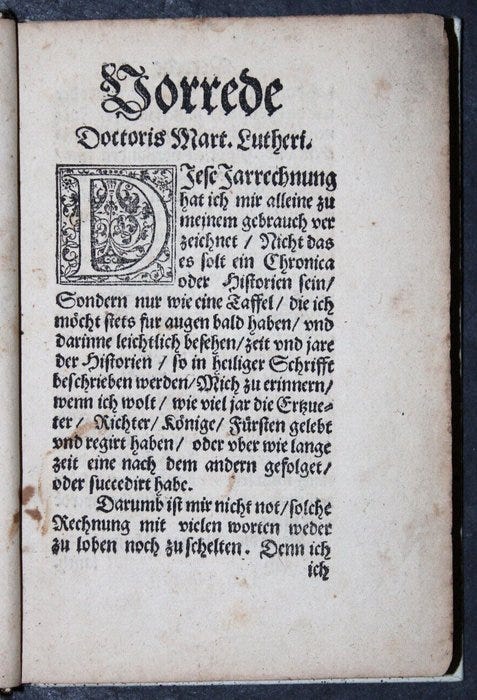 Vorrede
Doctoris Mart. Lutheri.
DJese Jarrechnung
hat ich mir alleine zu
meinem gebrauch ver
zeichnet / Nicht das
es solt ein Chronica
oder Historien sein/
Sondern nur wie eine Taffel / die ich
möcht stets fur augen bald haben/ vnd
darinne leichtlich besehen/ zeit vnd jare
der Historien / so in heiliger Schrifft
beschrieben werden/ Mich zu erinnern/
wenn ich wolt / wie viel jar die Ertzue-
ter / Richter/ Könige/ Fürsten gelebt
vnd regirt haben/ oder vber wie lange
zeit eine nach dem andern gefolget/
oder succedirt habe.
Darumb ist mir nicht not/ solche
Rechnung mit vielen worten weder
zu loben noch zu schelten. Denn ich
ich